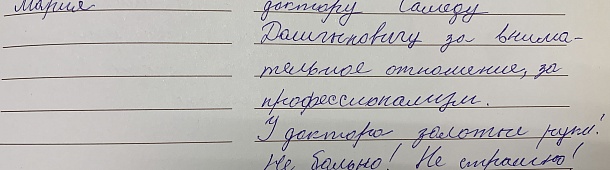 Мария доктору Самеду
Дашгыновичу за внима-
тельное отношение, за
профессионализм.
У доктора золотые руки!
Не больно! Не страшно!